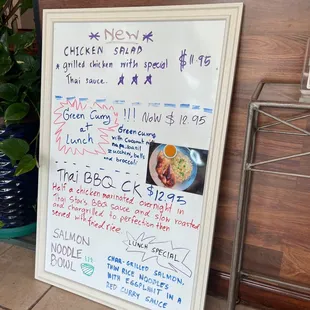 NEW
CHICKEN SALAD
grilled chicken with special
Thai sauce..
$11.95
Green Curry
at
LUNCH
!!! NOW $12.95
Green curry
with coconut milk
napa, basil
zucchini,
and broccoli
Thai BBQ CK $12.95
Half a chicken marinated overnight in
Thai Star's BBQ sauce and slow roasted
and chargrilled to perfection then
served with fried rice.
SALMON
NOODLE
BOWL
LUNCH SPECIAL
CHAR-GRILLED SALMON,
THIN RICE NOODLES
WITH EGGPLANT IN A
RED CURRY SAUCE